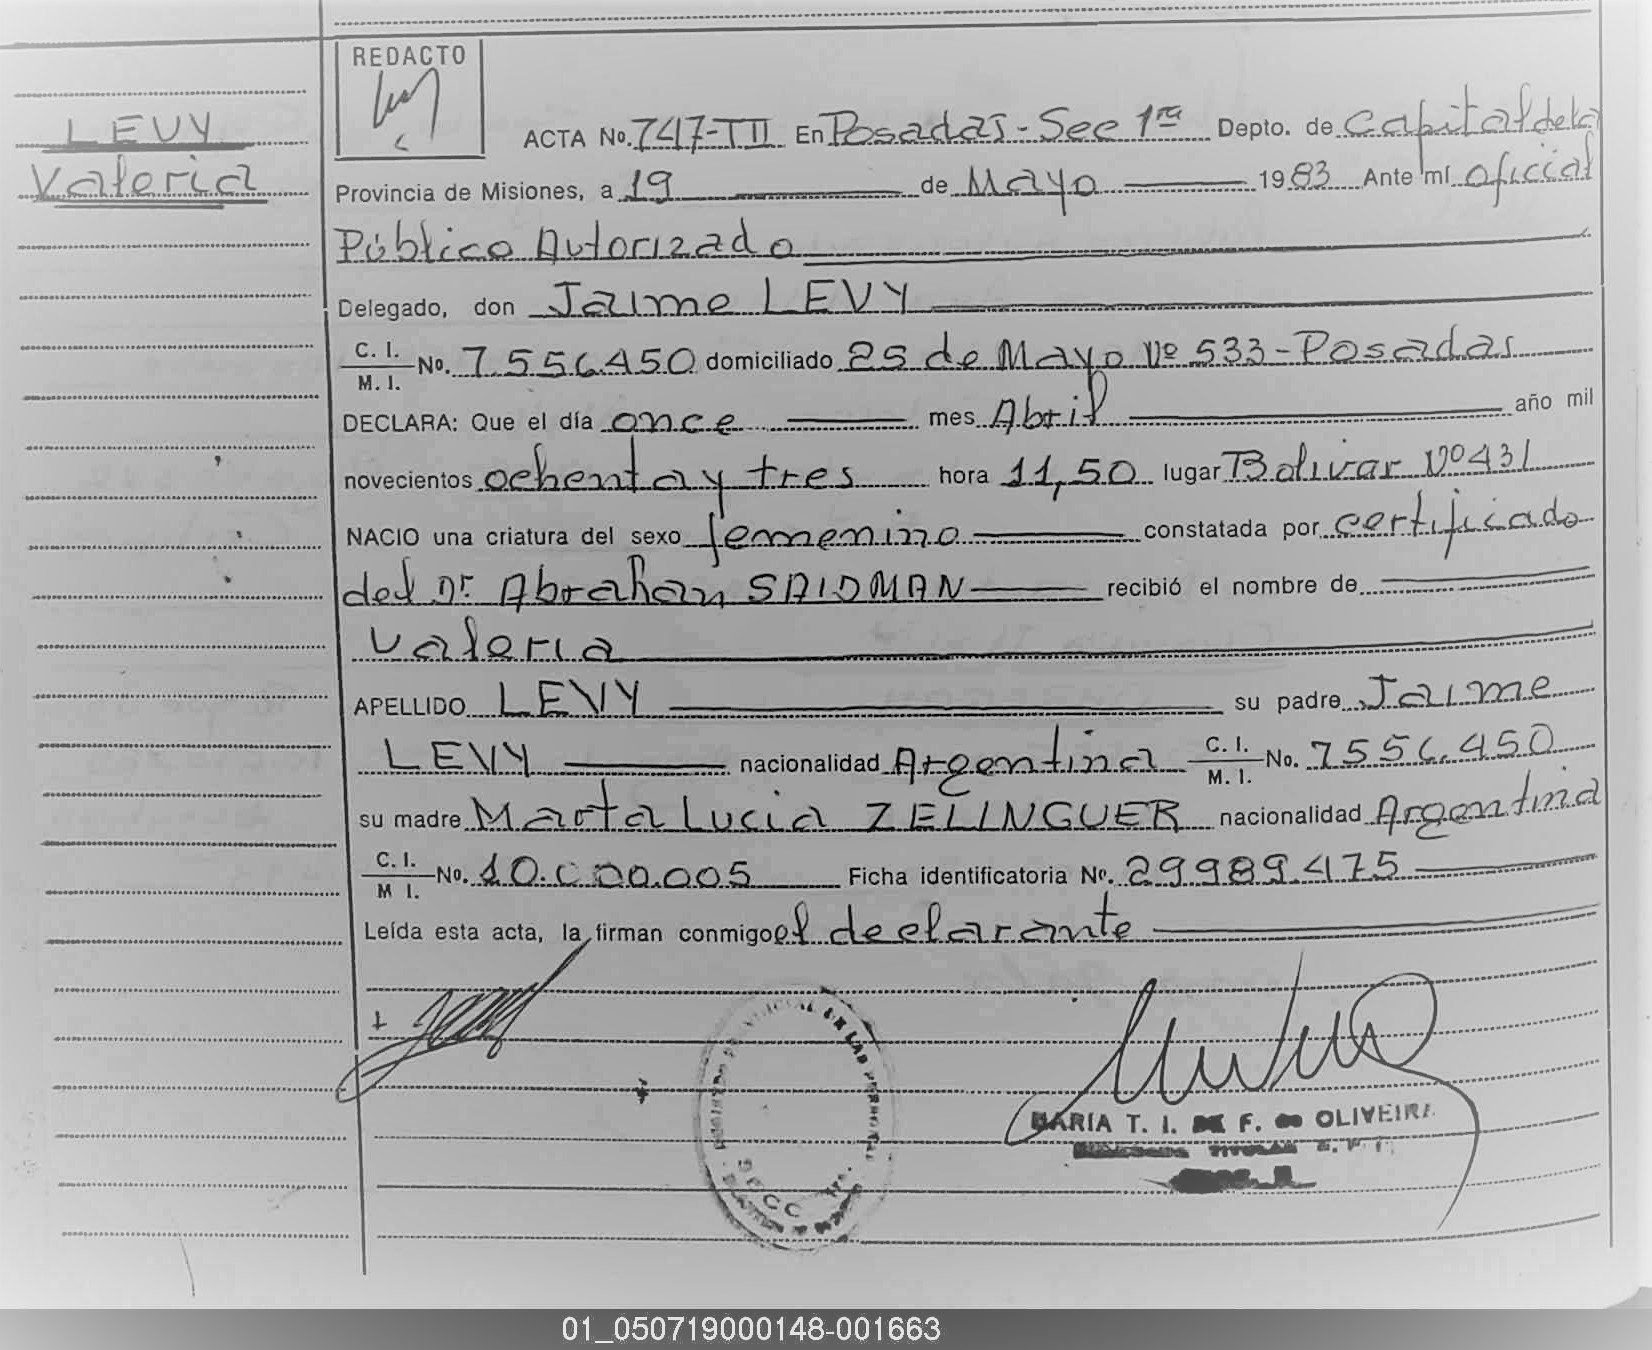 REDACTO
LEVY
Valeria
ACTA No. 747-TII En Posadas - Sec 1ra Depto. de Capital de la
Provincia de Misiones, a 19 de Mayo 1983 Ante mí oficial
Público Autorizado
Delegado, don Jaime LEVY
C. I. / M. I. No. 7.556.450 domiciliado 25 de Mayo Nº 533 - Posadas
DECLARA: Que el día once mes Abril año mil
novecientos ochenta y tres hora 11,50 lugar Bolivar Nº 431
NACIO una criatura del sexo femenino constatada por certificado
del Dr. Abraham SAIDMAN recibió el nombre de
Valeria
APELLIDO LEVY su padre Jaime
LEVY nacionalidad Argentina C. I. / M. I. No. 7556.450
su madre Marta Lucia ZELINGUER nacionalidad Argentina
C. I. / M I. No. 10.000.005 Ficha identificatoria Nº. 29989.475
Leída esta acta, la firman conmigo el declarante
REGISTRO PROVINCIAL DE LAS PERSONAS
SECC 1ra.
MARIA T. I. DE F. DE OLIVEIRA
TITULAR
01_050719000148-001663